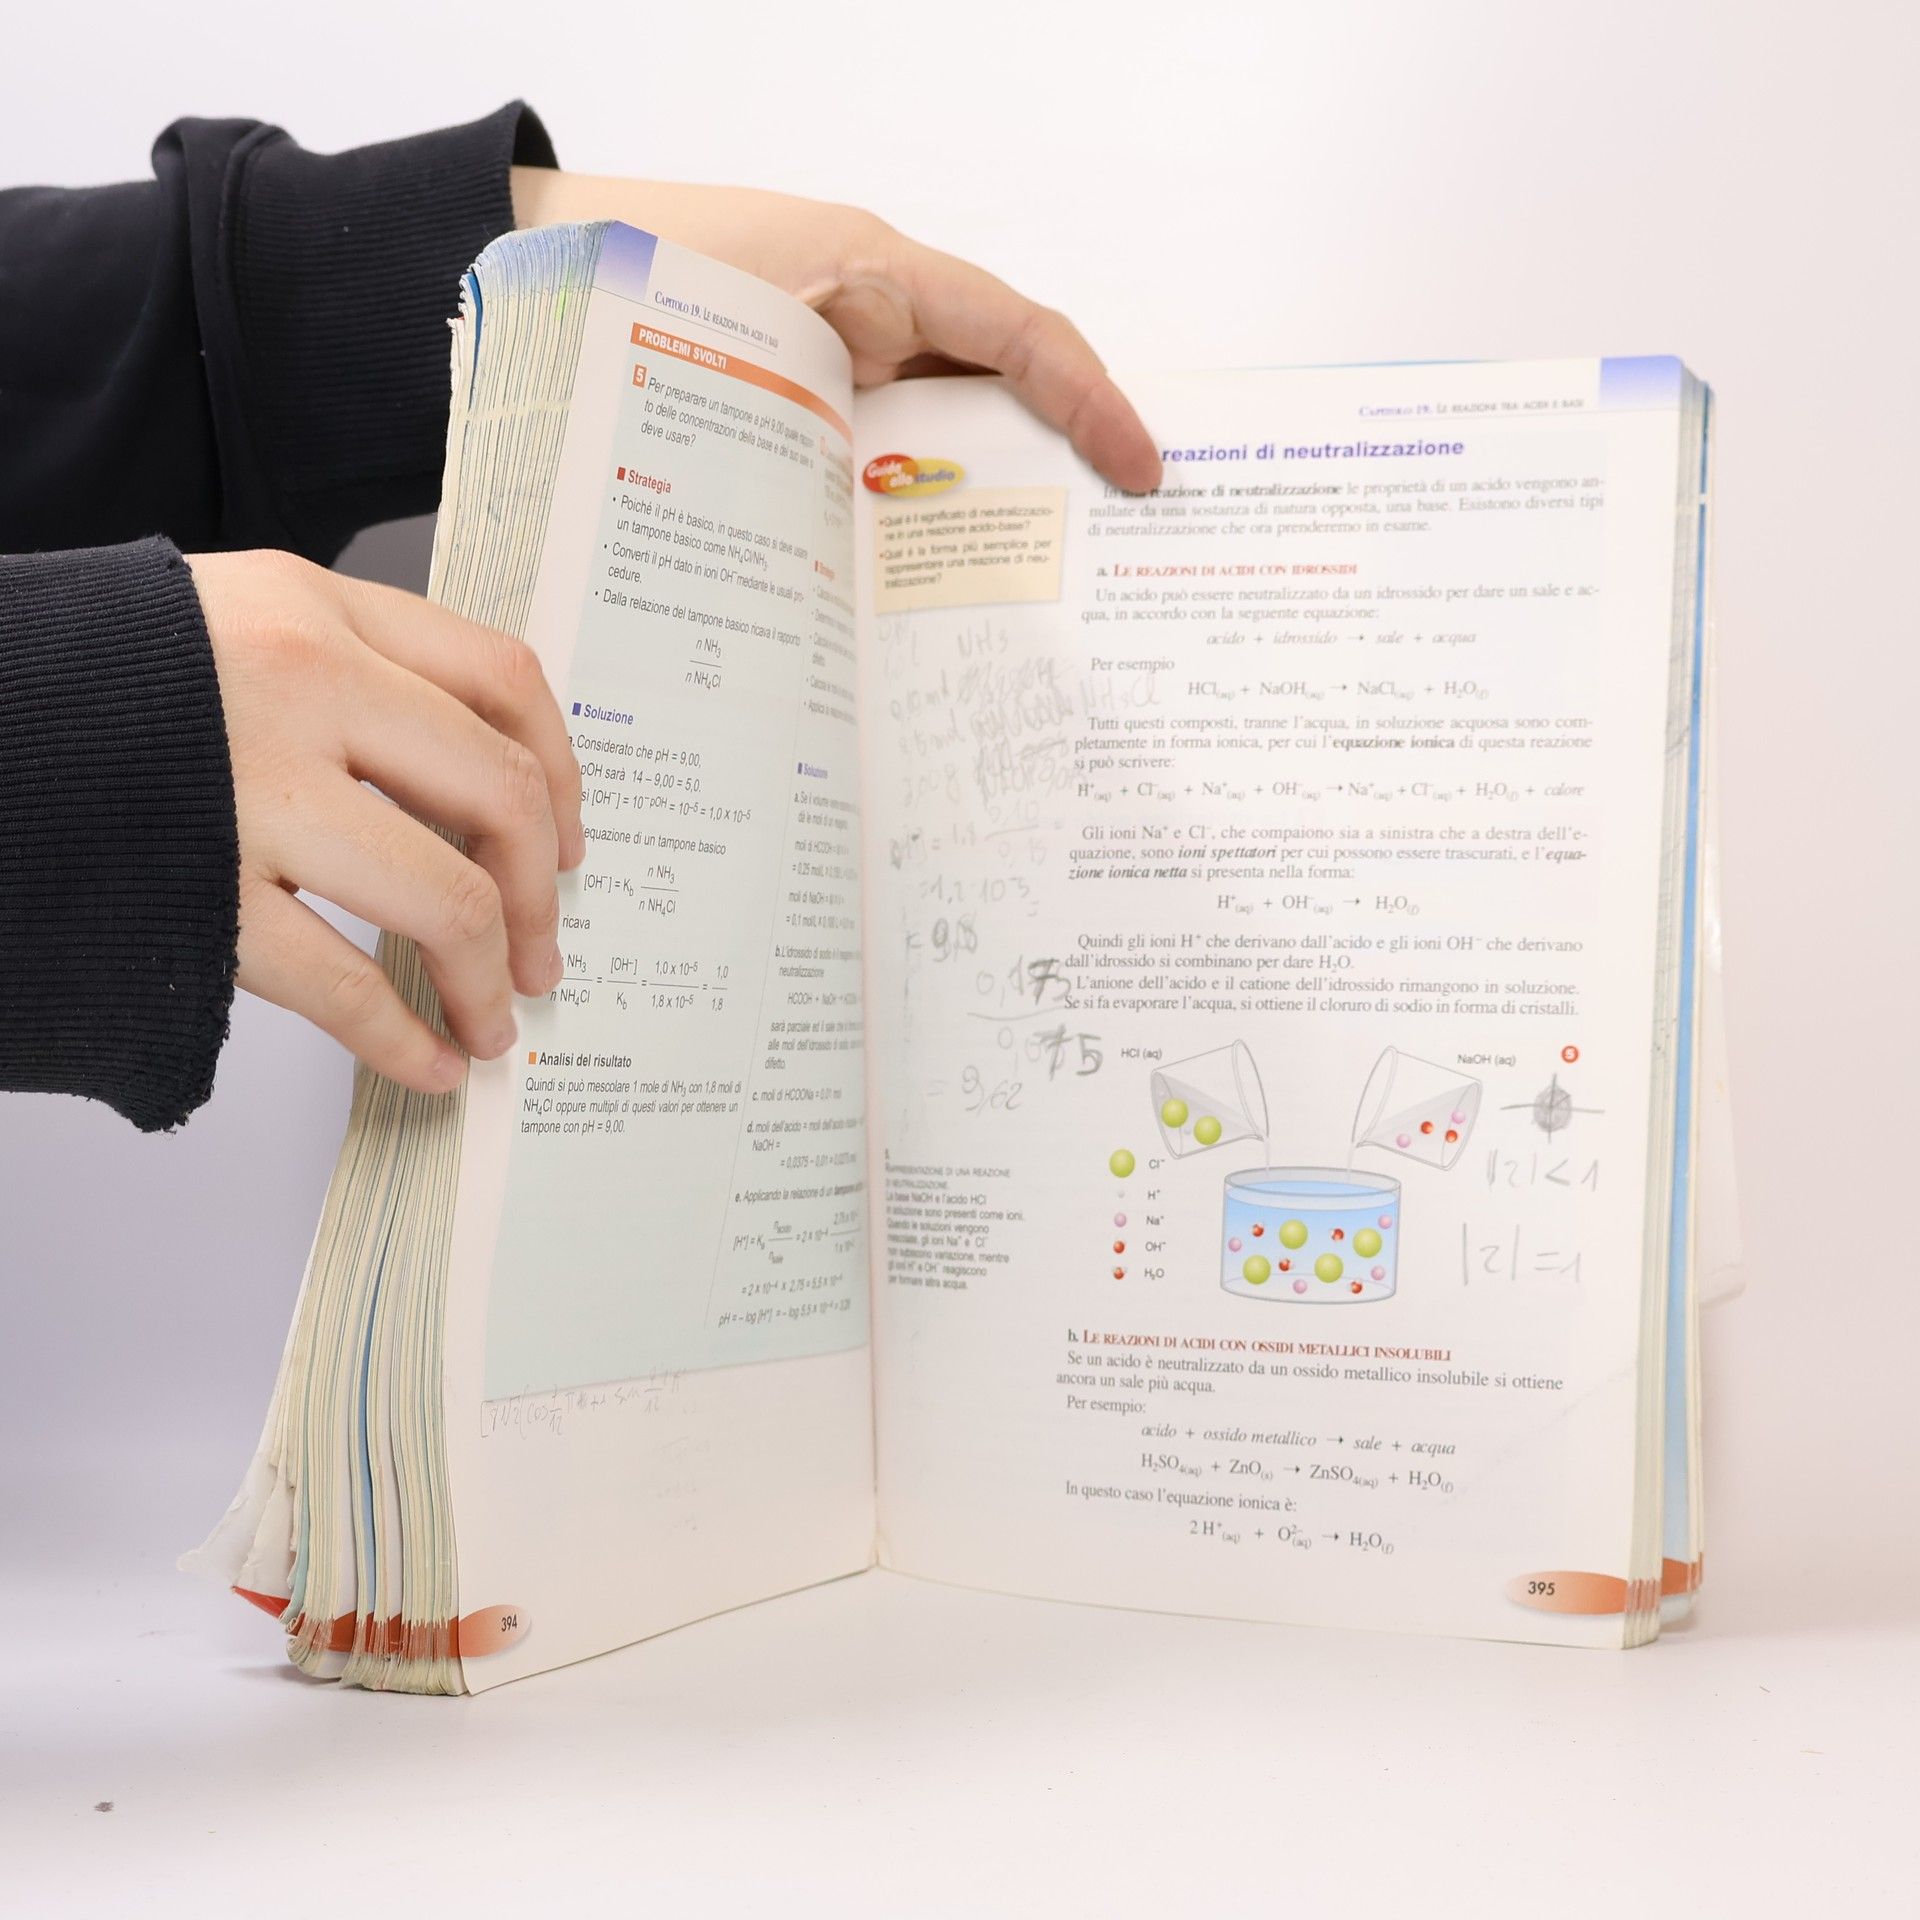 CAPITOLO 19. LE REAZIONI TRA ACIDI E BASI
PROBLEMI SVOLTI
5 Per preparare un tampone a pH 9,00 quale rappor-
to delle concentrazioni della base e del suo sale si
deve usare?
Strategia
• Poiché il pH è basico, in questo caso si deve usare
un tampone basico come NH4Cl/NH3.
• Converti il pH dato in ioni OH⁻ mediante le usuali pro-
cedure.
• Dalla relazione del tampone basico ricava il rapporto
n NH3
n NH4Cl
Soluzione
Considerato che pH = 9,00,
pOH sarà 14 – 9,00 = 5,0.
sì [OH⁻] = 10⁻pOH = 10⁻⁵ = 1,0 x 10⁻⁵
equazione di un tampone basico
[OH⁻] = Kb n NH3 / n NH4Cl
ricava
NH3 / n NH4Cl = [OH⁻] / Kb = 1,0 x 10⁻⁵ / 1,8 x 10⁻⁵ = 1,0 / 1,8
Analisi del risultato
Quindi si può mescolare 1 mole di NH3 con 1,8 moli di
NH4Cl oppure multipli di questi valori per ottenere un
tampone con pH = 9,00.
Soluzione
a. Se il volume
moli di HCOOH =
= 0,25 mol/L x
moli di NaOH =
= 0,1 mol/L x
b. L'idrossido di sodio è il
neutralizzazione
HCOOH + NaOH
sarà parziale ed il sale che si
alle moli dell'idrossido di
difetto.
c. moli di HCOONa = 0,01
d. moli dell'acido = moli dell'acido
NaOH =
= 0,0375 – 0,01 = 0,0275
e. Applicando la relazione di un tampone
[H⁺] = Ka nacido / nsale = 2 x 10⁻⁴
= 2 x 10⁻⁴ x 2,75 = 5,5 x 10⁻⁴
pH = – log [H⁺] = – log 5,5 x 10⁻⁴ = 3,26
394
CAPITOLO 19. LE REAZIONI TRA ACIDI E BASI
Guida
allo studio
• Qual è il significato di neutralizzazio-
ne in una reazione acido-base?
• Qual è la forma più semplice per
rappresentare una reazione di neu-
tralizzazione?
reazioni di neutralizzazione
In una reazione di neutralizzazione le proprietà di un acido vengono an-
nullate da una sostanza di natura opposta, una base. Esistono diversi tipi
di neutralizzazione che ora prenderemo in esame.
a. LE REAZIONI DI ACIDI CON IDROSSIDI
Un acido può essere neutralizzato da un idrossido per dare un sale e ac-
qua, in accordo con la seguente equazione:
acido + idrossido → sale + acqua
Per esempio
HCl(aq) + NaOH(aq) → NaCl(aq) + H2O(l)
Tutti questi composti, tranne l'acqua, in soluzione acquosa sono com-
pletamente in forma ionica, per cui l'equazione ionica di questa reazione
si può scrivere:
H⁺(aq) + Cl⁻(aq) + Na⁺(aq) + OH⁻(aq) → Na⁺(aq) + Cl⁻(aq) + H2O(l) + calore
Gli ioni Na⁺ e Cl⁻, che compaiono sia a sinistra che a destra dell'e-
quazione, sono ioni spettatori per cui possono essere trascurati, e l'equa-
zione ionica netta si presenta nella forma:
H⁺(aq) + OH⁻(aq) → H2O(l)
Quindi gli ioni H⁺ che derivano dall'acido e gli ioni OH⁻ che derivano
dall'idrossido si combinano per dare H2O.
L'anione dell'acido e il catione dell'idrossido rimangono in soluzione.
Se si fa evaporare l'acqua, si ottiene il cloruro di sodio in forma di cristalli.
NH3
= 9,62
HCl (aq)
NaOH (aq)
5
Cl⁻
H⁺
Na⁺
OH⁻
H2O
|z| < 1
|z| = 1
5.
RAPPRESENTAZIONE DI UNA REAZIONE
DI NEUTRALIZZAZIONE.
La base NaOH e l'acido HCl
in soluzione sono presenti come ioni.
Quando le soluzioni vengono
mescolate, gli ioni Na⁺ e Cl⁻
non subiscono variazione, mentre
gli ioni H⁺ e OH⁻ reagiscono
per formare altra acqua.
b. LE REAZIONI DI ACIDI CON OSSIDI METALLICI INSOLUBILI
Se un acido è neutralizzato da un ossido metallico insolubile si ottiene
ancora un sale più acqua.
Per esempio:
acido + ossido metallico → sale + acqua
H2SO4(aq) + ZnO(s) → ZnSO4(aq) + H2O(l)
In questo caso l'equazione ionica è:
2 H⁺(aq) + O²⁻(aq) → H2O(l)
395